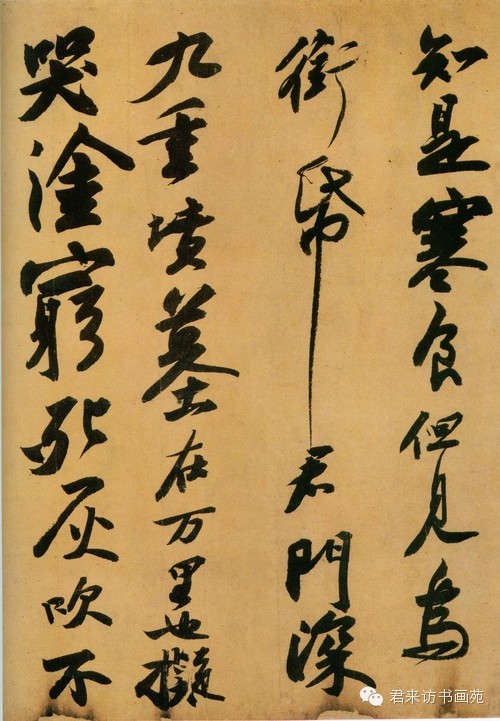 知是寒食但見烏
銜帋君門深
九重墳墓在万里也擬
哭塗窮死灰吹不
君来访书画苑